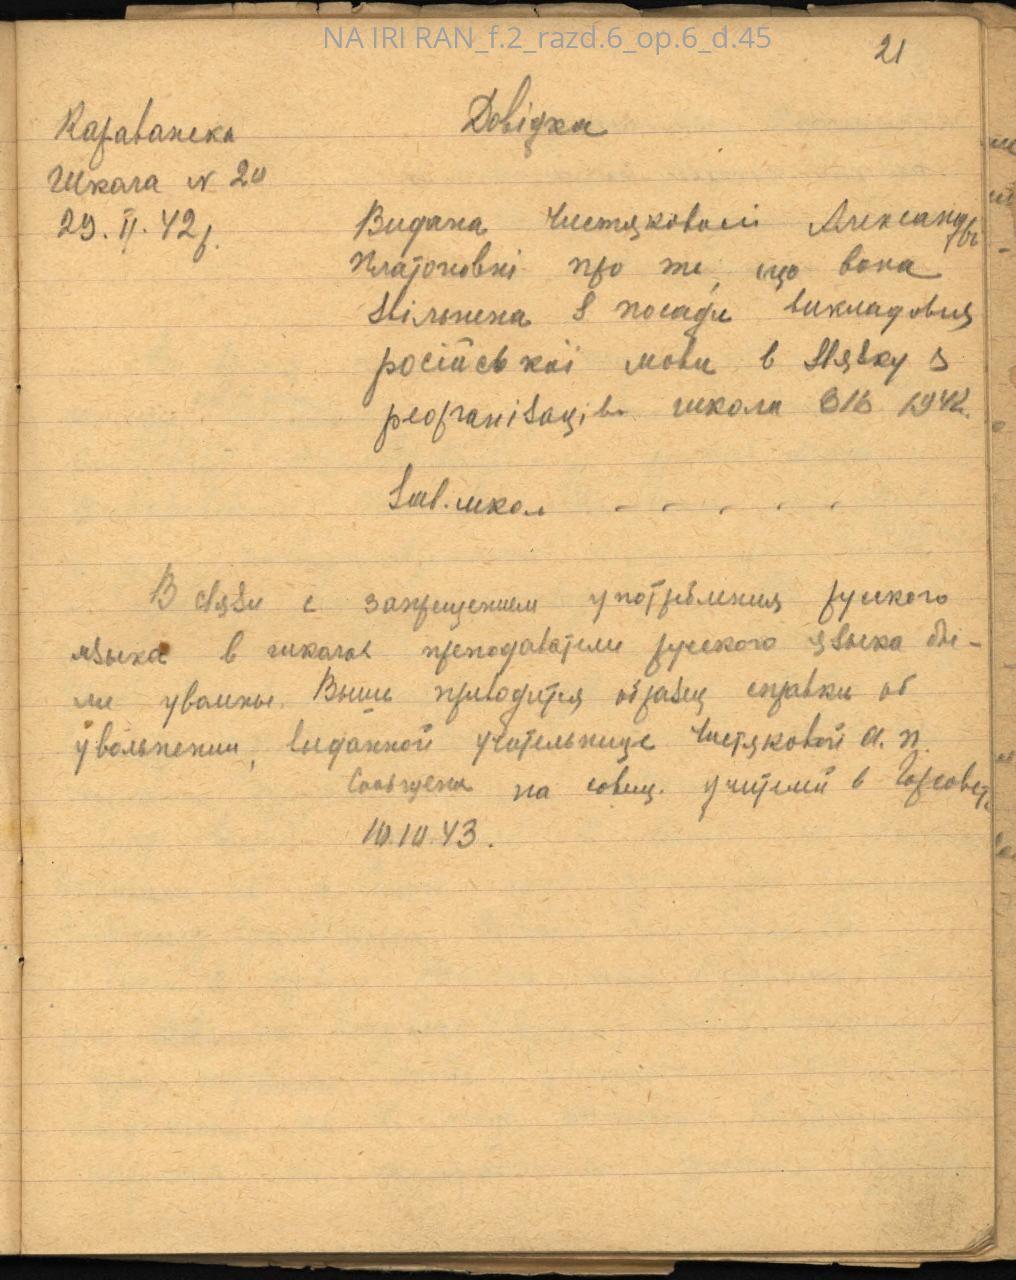 NA IRI RAN_f.2_razd.6_op.6_d.45
21
Довідка
Караванська
Школа N 20
29. II. 42 р.
Видана Чистяковой Александрі
Платоновні про те, що вона
звільнена з посади викладовця
російської мови в звязку з
реорганізацієв школи 1942.
Зав. школ - - - - -
В связи с запрещением употребления русского
языка в школах преподаватели русского языка бы-
ли уволены. Выше приводится образец справки об
увольнении, выданной учительнице Чистяковой А. П.
Сообщена на совещ. учителей в Горсовете
10.10.43.